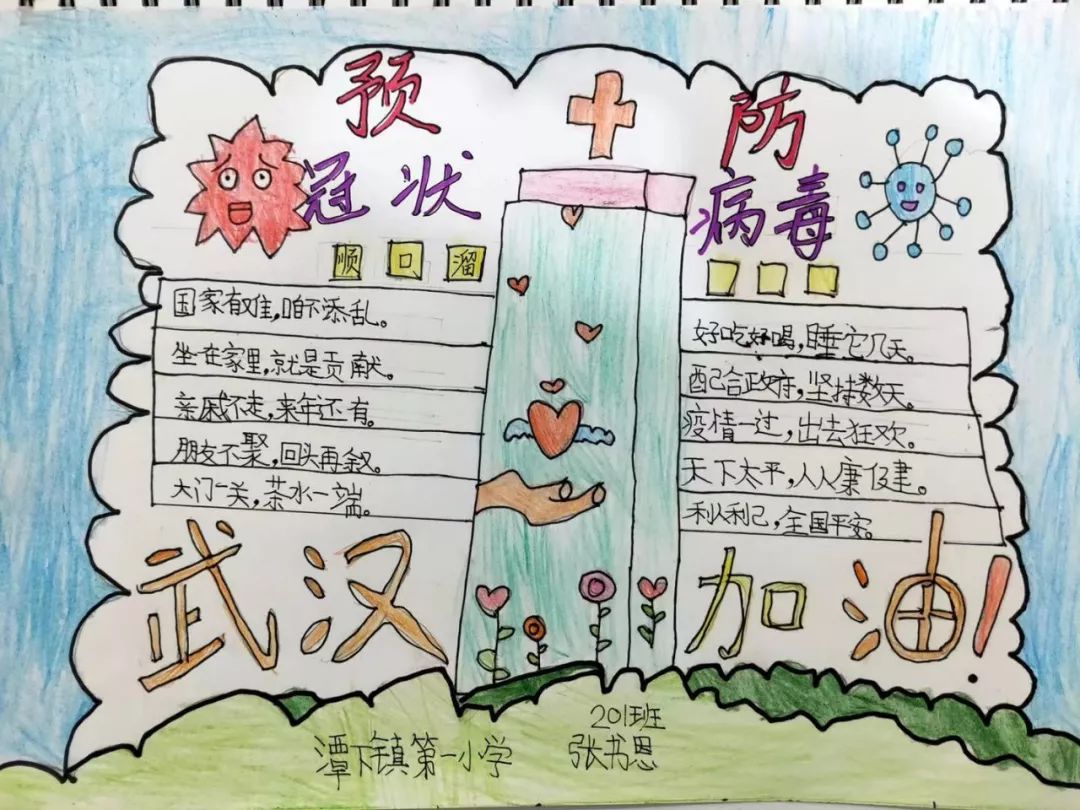 预 防
冠状 病毒
顺口溜
国家有难，咱不添乱。
坐在家里，就是贡献。
亲戚不走，来年还有。
朋友不聚，回头再叙。
大门一关，茶水一端。
好吃好喝，睡它几天。
配合政府，坚持数天。
疫情一过，出去狂欢。
天下太平，人人康健。
利人利己，全国平安。
武汉 加油！
201班
潭下镇第一小学 张书恩